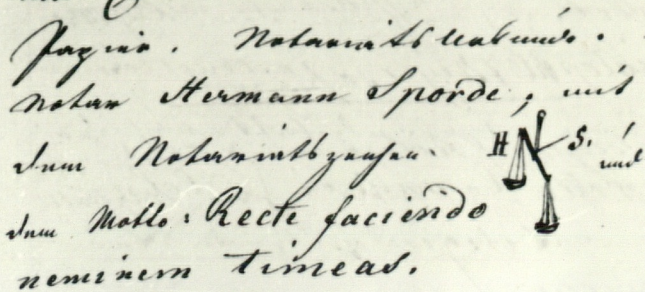 Papier. Notariatsurkunde.
Notar Hermann Sporde, mit
dem Notariatszeichen. H S. und
dem Motto: Recte faciendo
neminem timeas.